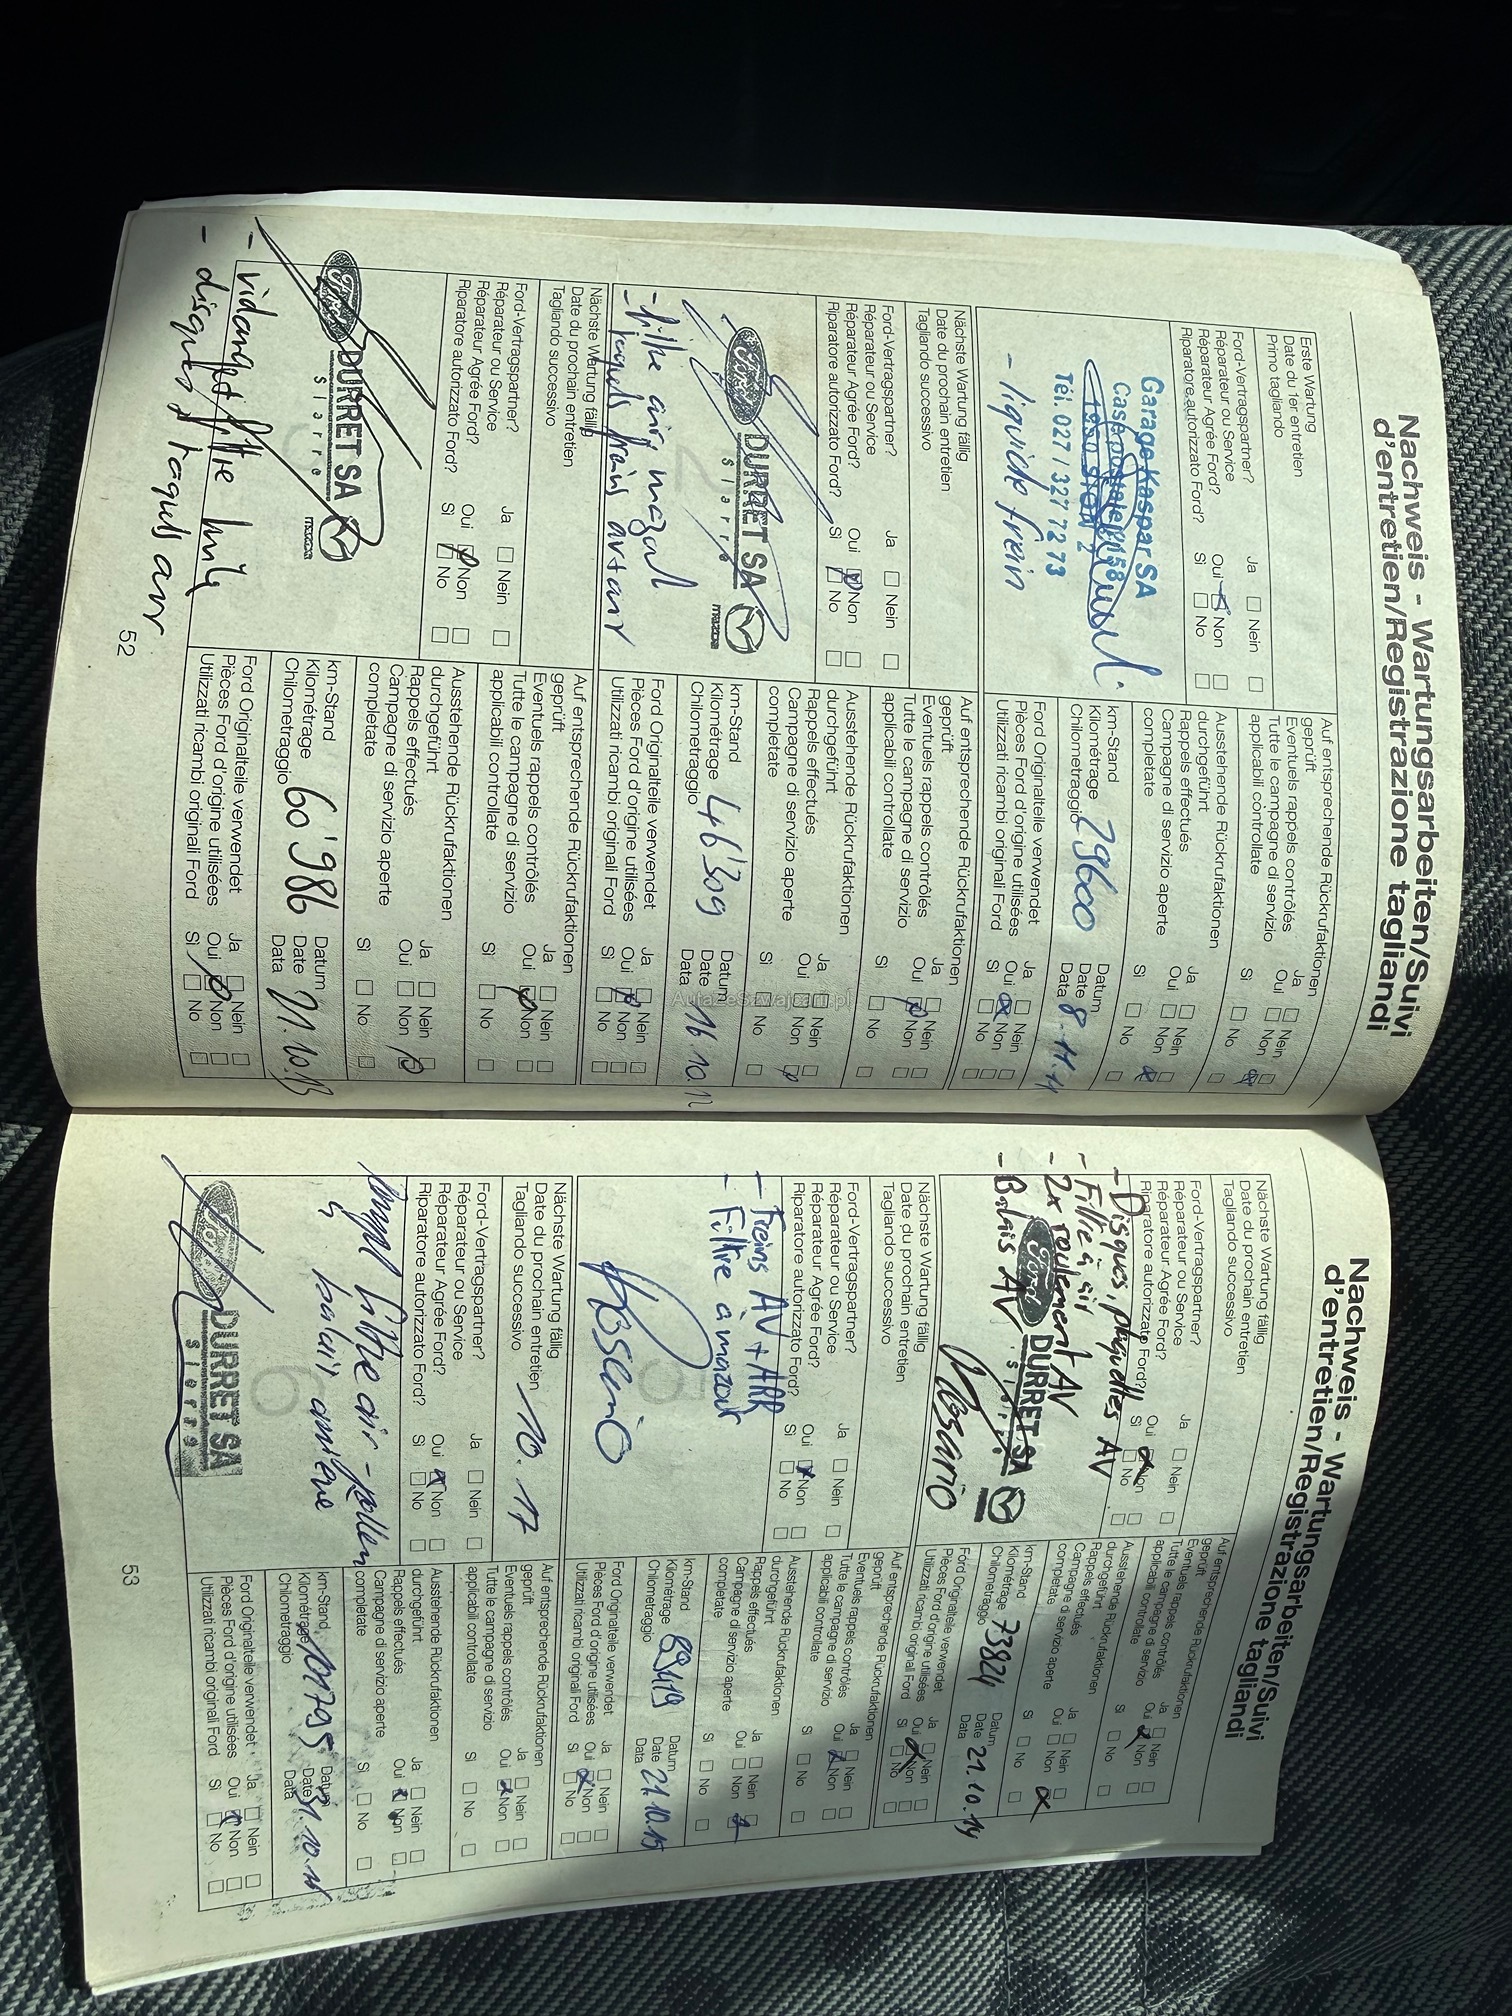 Nachweis - Wartungsarbeiten/Suivi
d'entretien/Registrazione tagliandi
Erste Wartung
Date du 1er entretien
Primo tagliando
Ford-Vertragspartner?
Réparateur ou Service
Réparateur Agrée Ford?
Riparatore autorizzato Ford?
Ja Nein
Oui Non
Sì No
Garage Kaspar SA
Case postale 158
1950 SION 2
Tél. 027 / 327 72 73
- liquide frein
Auf entsprechende Rückrufaktionen
geprüft
Eventuels rappels contrôlés
Tutte le campagne di servizio
applicabili controllate
Ja Nein
Oui Non
Sì No
Ausstehende Rückrufaktionen
durchgeführt
Rappels effectués
Campagne di servizio aperte
completate
Ja Nein
Oui Non
Sì No
km-Stand
Kilométrage 29600
Chilometraggio
Datum
Date 8.11.11
Data
Ford Originalteile verwendet
Pièces Ford d'origine utilisées
Utilizzati ricambi originali Ford
Ja Nein
Oui Non
Sì No
Nächste Wartung fällig
Date du prochain entretien
Tagliando successivo
Ford-Vertragspartner?
Réparateur ou Service
Réparateur Agrée Ford?
Riparatore autorizzato Ford?
Ja Nein
Oui Non
Sì No
Ford DURRET SA
Sierre
mazda
- filtre air, mazout
- taquets freins av+arr
Auf entsprechende Rückrufaktionen
geprüft
Eventuels rappels contrôlés
Tutte le campagne di servizio
applicabili controllate
Ja Nein
Oui Non
Sì No
Ausstehende Rückrufaktionen
durchgeführt
Rappels effectués
Campagne di servizio aperte
completate
Ja Nein
Oui Non
Sì No
km-Stand
Kilométrage 46'309
Chilometraggio
Datum
Date 16.10.12
Data
Ford Originalteile verwendet
Pièces Ford d'origine utilisées
Utilizzati ricambi originali Ford
Ja Nein
Oui Non
Sì No
Nächste Wartung fällig
Date du prochain entretien
Tagliando successivo
Ford-Vertragspartner?
Réparateur ou Service
Réparateur Agrée Ford?
Riparatore autorizzato Ford?
Ja Nein
Oui Non
Sì No
Ford DURRET SA
Sierre
mazda
- vidange, filtre huile
- disques, taquets arr
Auf entsprechende Rückrufaktionen
geprüft
Eventuels rappels contrôlés
Tutte le campagne di servizio
applicabili controllate
Ja Nein
Oui Non
Sì No
Ausstehende Rückrufaktionen
durchgeführt
Rappels effectués
Campagne di servizio aperte
completate
Ja Nein
Oui Non
Sì No
km-Stand
Kilométrage 60'986
Chilometraggio
Datum
Date 21.10.13
Data
Ford Originalteile verwendet
Pièces Ford d'origine utilisées
Utilizzati ricambi originali Ford
Ja Nein
Oui Non
Sì No
52
AutazeSzwajcarii.pl
Nachweis - Wartungsarbeiten/Suivi
d'entretien/Registrazione tagliandi
Nächste Wartung fällig
Date du prochain entretien
Tagliando successivo
Ford-Vertragspartner?
Réparateur ou Service
Réparateur Agrée Ford?
Riparatore autorizzato Ford?
Ja Nein
Oui Non
Sì No
- Disques, plaquettes AV
- Filtre à air
- 2x roulement AV
- Balais AV
Ford DURRET SA
Sierre
Rosario
Auf entsprechende Rückrufaktionen
geprüft
Eventuels rappels contrôlés
Tutte le campagne di servizio
applicabili controllate
Ja Nein
Oui Non
Sì No
Ausstehende Rückrufaktionen
durchgeführt
Rappels effectués
Campagne di servizio aperte
completate
Ja Nein
Oui Non
Sì No
km-Stand
Kilométrage 73824
Chilometraggio
Datum
Date 21.10.14
Data
Ford Originalteile verwendet
Pièces Ford d'origine utilisées
Utilizzati ricambi originali Ford
Ja Nein
Oui Non
Sì No
Nächste Wartung fällig
Date du prochain entretien
Tagliando successivo
Ford-Vertragspartner?
Réparateur ou Service
Réparateur Agrée Ford?
Riparatore autorizzato Ford?
Ja Nein
Oui Non
Sì No
- Freins AV + ARR
- Filtre à mazout
Rosario
Auf entsprechende Rückrufaktionen
geprüft
Eventuels rappels contrôlés
Tutte le campagne di servizio
applicabili controllate
Ja Nein
Oui Non
Sì No
Ausstehende Rückrufaktionen
durchgeführt
Rappels effectués
Campagne di servizio aperte
completate
Ja Nein
Oui Non
Sì No
km-Stand
Kilométrage 89419
Chilometraggio
Datum
Date 21.10.15
Data
Ford Originalteile verwendet
Pièces Ford d'origine utilisées
Utilizzati ricambi originali Ford
Ja Nein
Oui Non
Sì No
Nächste Wartung fällig
Date du prochain entretien 10.17
Tagliando successivo
Ford-Vertragspartner?
Réparateur ou Service
Réparateur Agrée Ford?
Riparatore autorizzato Ford?
Ja Nein
Oui Non
Sì No
filtre air - pollen
balais arrière
6
Ford DURRET SA
Sierre
Auf entsprechende Rückrufaktionen
geprüft
Eventuels rappels contrôlés
Tutte le campagne di servizio
applicabili controllate
Ja Nein
Oui Non
Sì No
Ausstehende Rückrufaktionen
durchgeführt
Rappels effectués
Campagne di servizio aperte
completate
Ja Nein
Oui Non
Sì No
km-Stand
Kilométrage 101795
Chilometraggio
Datum
Date 31.10.16
Data
Ford Originalteile verwendet
Pièces Ford d'origine utilisées
Utilizzati ricambi originali Ford
Ja Nein
Oui Non
Sì No
53